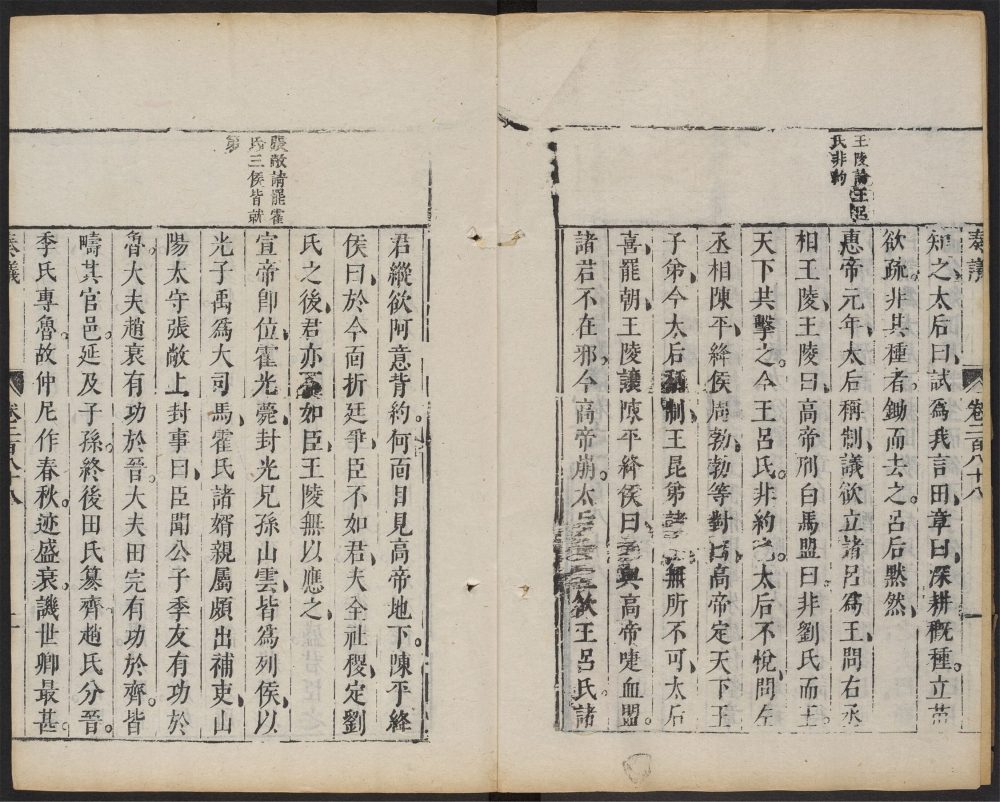 奏議 卷二百八十八 一
王陵論王呂
氏非約
知之太后曰試為我言田章曰深耕穊種立苗
欲疏非其種者鋤而去之呂后黙然
惠帝元年太后稱制議欲立諸呂為王問右丞
相王陵王陵曰高帝刑白馬盟曰非劉氏而王
天下共擊之今王呂氏非約也太后不悅問左
丞相陳平絳侯周勃勃等對曰高帝定天下王
子弟今太后稱制王昆弟諸呂無所不可太后
喜罷朝王陵讓陳平絳侯曰與高帝啑血盟
諸君不在邪今高帝崩太后欲王呂氏諸
君縱欲阿意背約何面目見高帝地下陳平絳
侯曰於今面折廷爭臣不如君夫全社稷定劉
氏之後君亦如臣王陵無以應之
張敞請罷霍
氏三侯皆就
第
宣帝即位霍光薨封光兄孫山雲皆為列侯以
光子禹為大司馬霍氏諸婿親屬頗出補吏山
陽太守張敞上封事曰臣聞公子季友有功於
魯大夫趙衰有功於晉大夫田完有功於齊皆
疇其官邑延及子孫終後田氏篡齊趙氏分晉
季氏專魯故仲尼作春秋迹盛衰譏世卿最甚
奏議 卷二百八十八